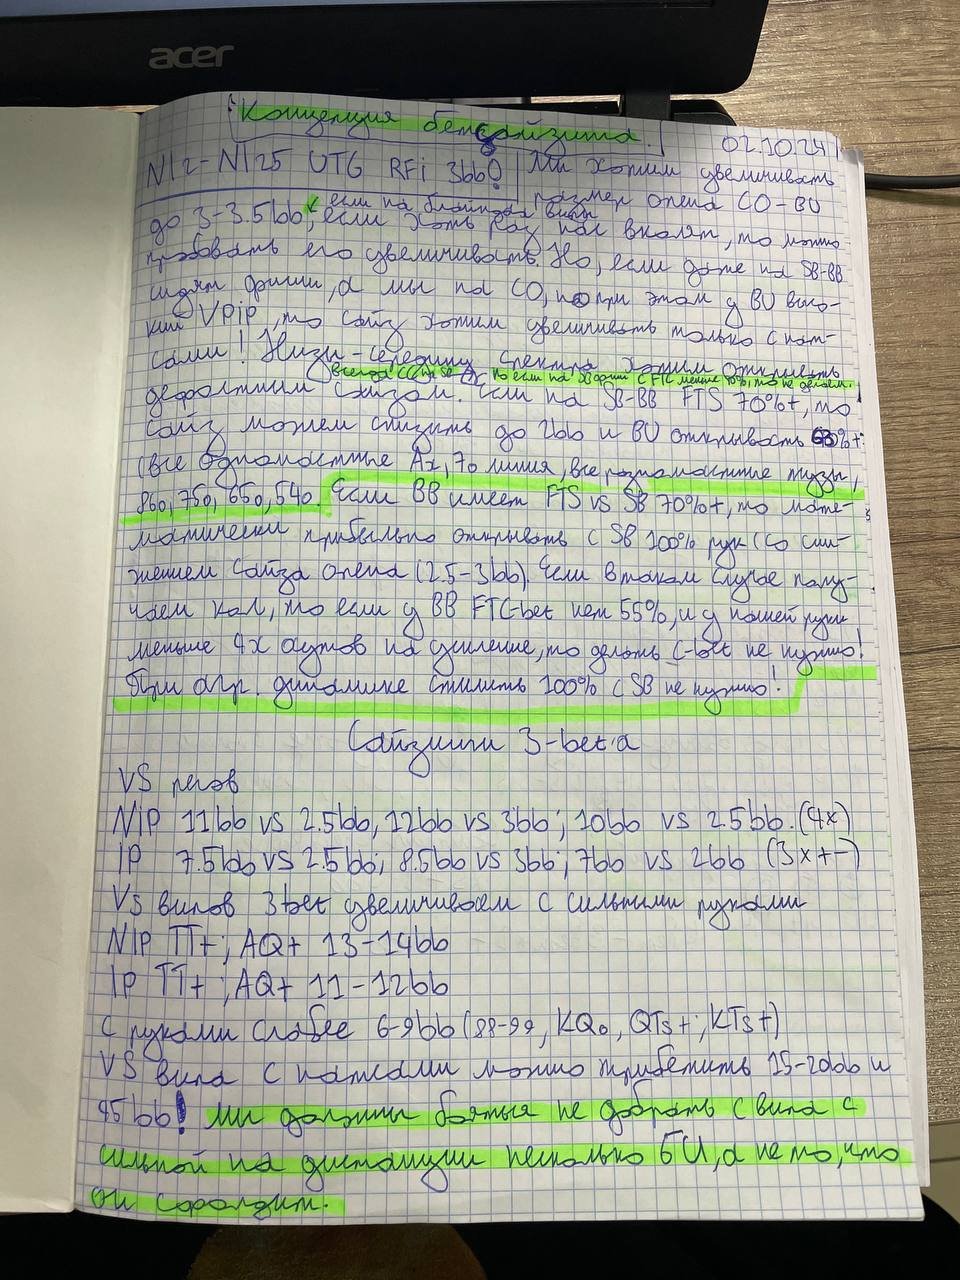 acer
Концепция бетсайзинга.
02.10.24
Nl2-Nl25 UTG RFi 3bb! Мы хотим увеличивать
размер опена CO-BU
если на блайндах вилы
до 3-3.5bb, если хоть раз нас вколят, то можно
пробовать его увеличивать. Но, если даже на SB-BB
сидят фиши, а мы на CO, но при этом у BU высо-
кий VPiP, то сайз хотим увеличивать только с нат-
сами! Низы-середину спектра хотим открывать
но если на BB фиш с FTC меньше 40%, то не делаем.
дефолтным сайзом. Если на SB-BB FTS 70%+, то
сайз можем снизить до 2bb и BU открывать 63%+:
(все одномастные Ax, 70 линия, все разномастные тузы,
860, 750, 650, 540. Если BB имеет FTS vs SB 70%+, то мате-
матически прибыльно открывать с SB 100% рук (со сни-
жением сайза опена (2.5-3bb). Если в таком случае полу-
чаем кол, то если у BB FTC-bet нет 55%, и у нашей руки
меньше 4х аутов на усиление, то делать c-bet не нужно!
При агр. динамике стилить 100% с SB не нужно!
Сайзинги 3-bet'а
VS регов
NIP 11bb vs 2.5bb, 12bb vs 3bb; 10bb vs 2.5bb. (4x)
IP 7.5bb vs 2.5bb; 8.5bb vs 3bb; 7bb vs 2bb (3x+-)
Vs вилов 3bet увеличиваем с сильными руками
NIP TT+; AQ+ 13-14bb
IP TT+; AQ+ 11-12bb
с руками слабее 6-9bb (88-99, KQo, QTs+; KTs+)
VS вила с натсами можно трибетить 15-20bb и
45bb! Мы должны бояться не добрать с вила с
сильной на дистанции несколько БИ, а не то, что
он сфолдит.